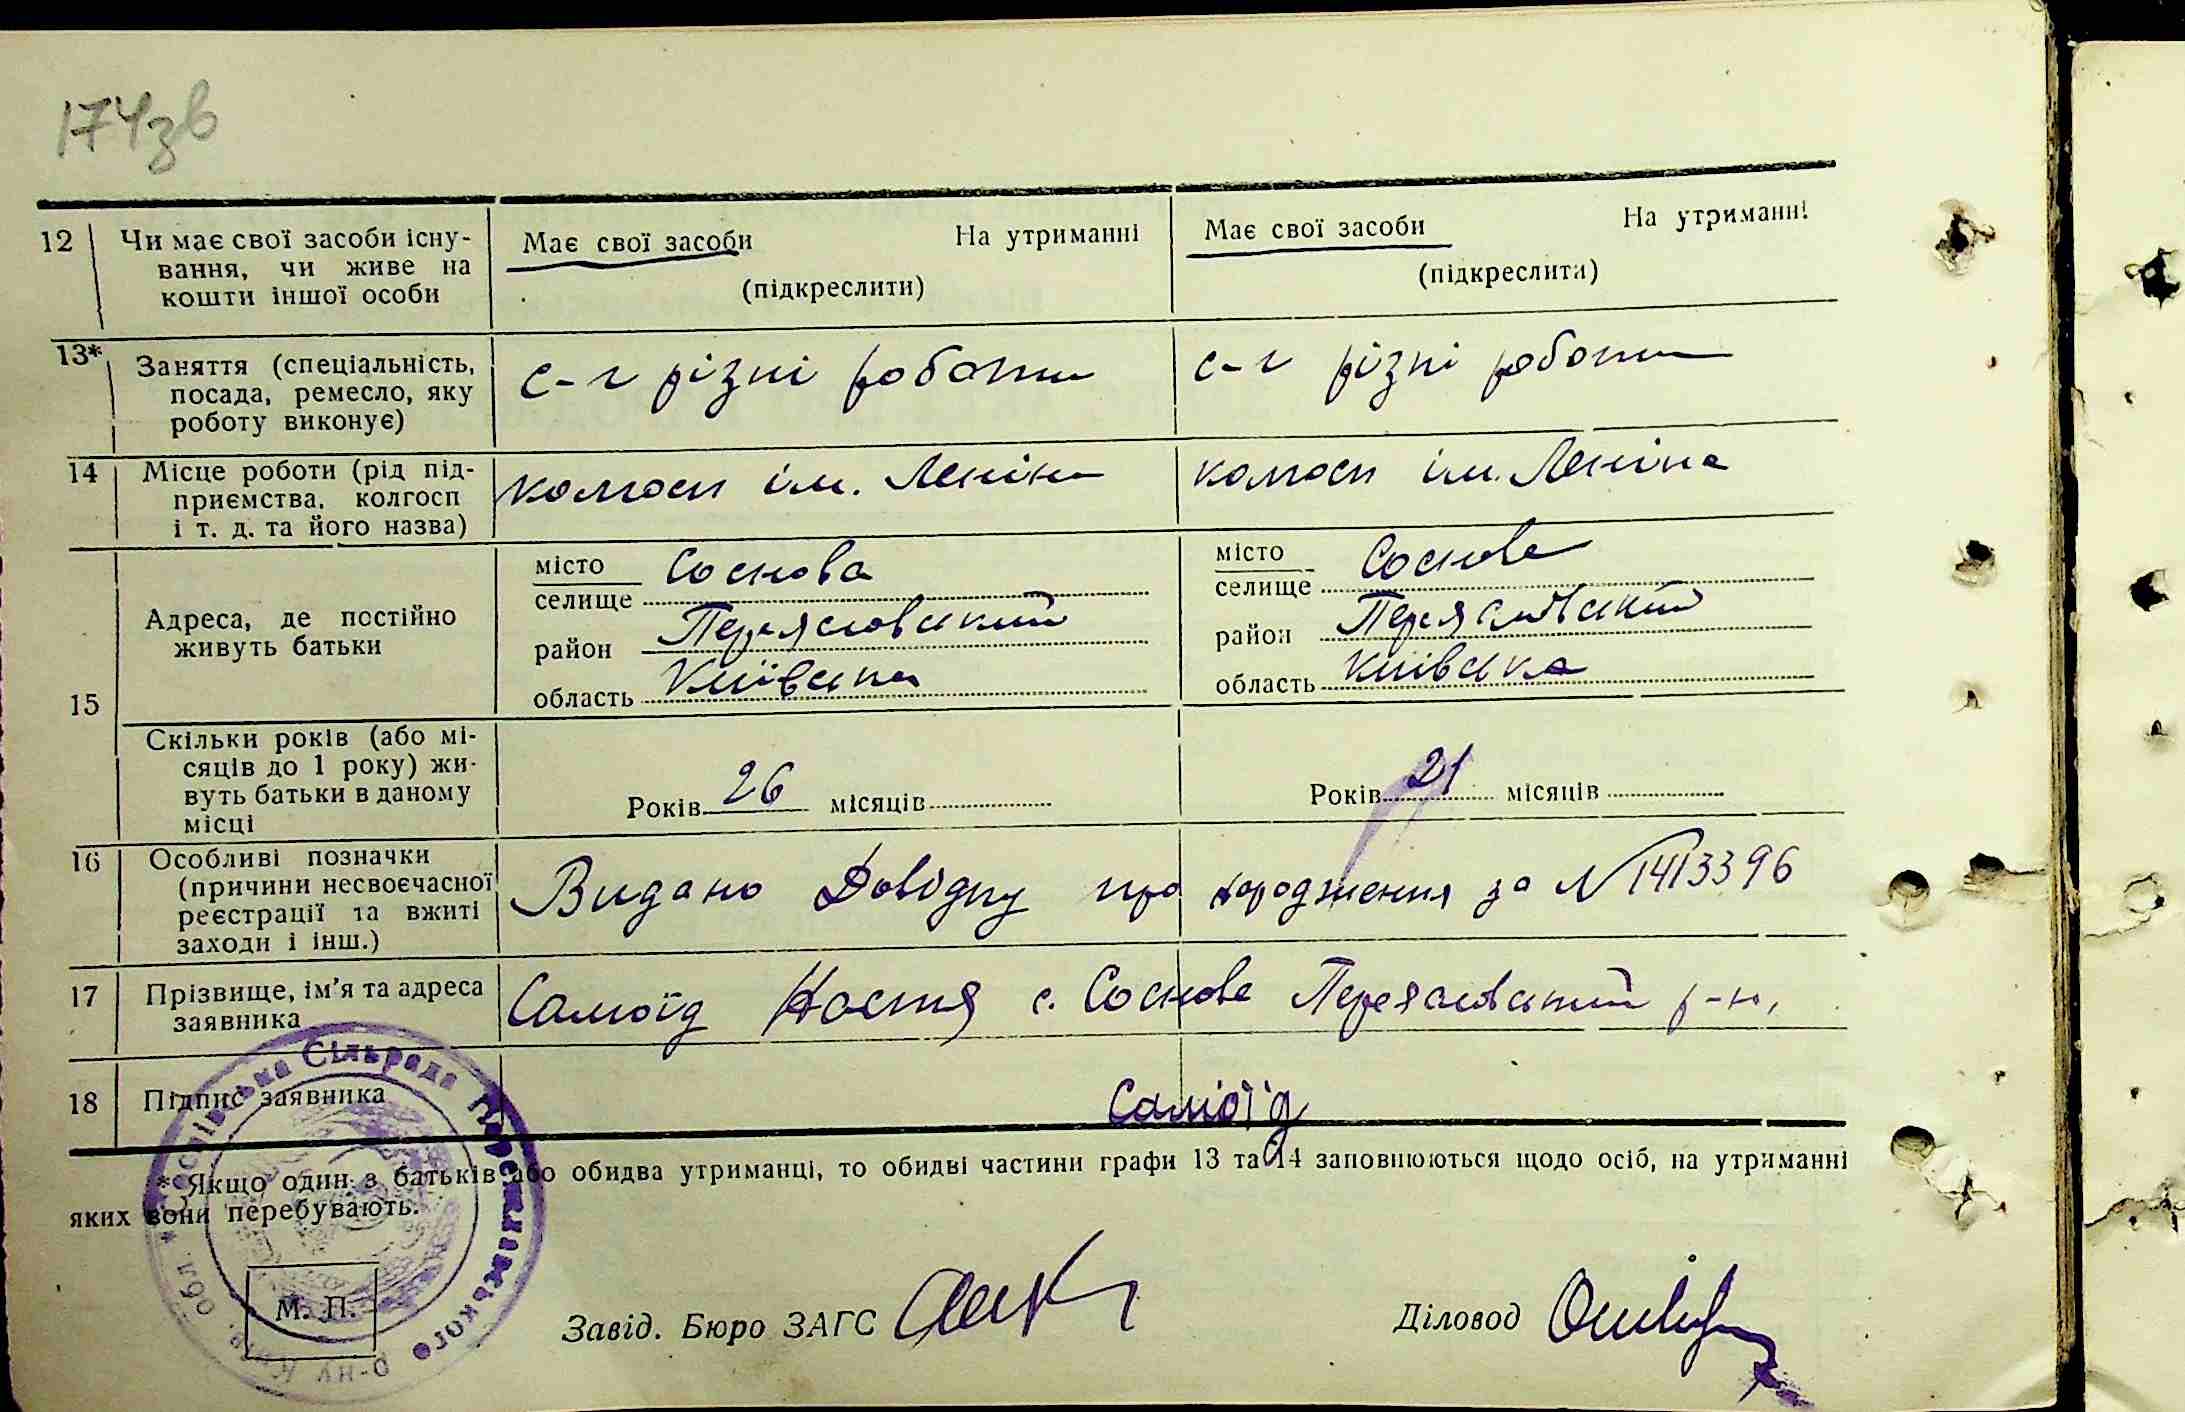 174зв
12 Чи має свої засоби існу- Має свої засоби На утриманні Має свої засоби На утриманні
вання, чи живе на (підкреслити) (підкреслити)
кошти іншої особи
13* Заняття (спеціальність, с-г різні роботи с-г різні роботи
посада, ремесло, яку
роботу виконує)
14 Місце роботи (рід під- колгосп ім. Леніна колгосп ім. Леніна
приємства, колгосп
і т. д. та його назва)
15 Адреса, де постійно
живуть батьки
місто Соснова місто Соснова
селище селище
район Переяславський район Переяславський
область Київська область Київська
Скільки років (або мі-
сяців до 1 року) жи-
вуть батьки в даному
місці
Років 26 місяців Років 21 місяців
16 Особливі позначки
(причини несвоєчасної
реєстрації та вжиті
заходи і інш.)
Видано Довідку про народження за № 1413396
17 Прізвище, ім'я та адреса
заявника
Самоїд Настя с. Соснова Переяславський р-н,
18 Підпис заявника Самоїд
* Якщо один з батьків або обидва утриманці, то обидві частини графи 13 та 14 заповнюються щодо осіб, на утриманні
яких вони перебувають.
Сільрада
М. П.
Завід. Бюро ЗАГС Діловод